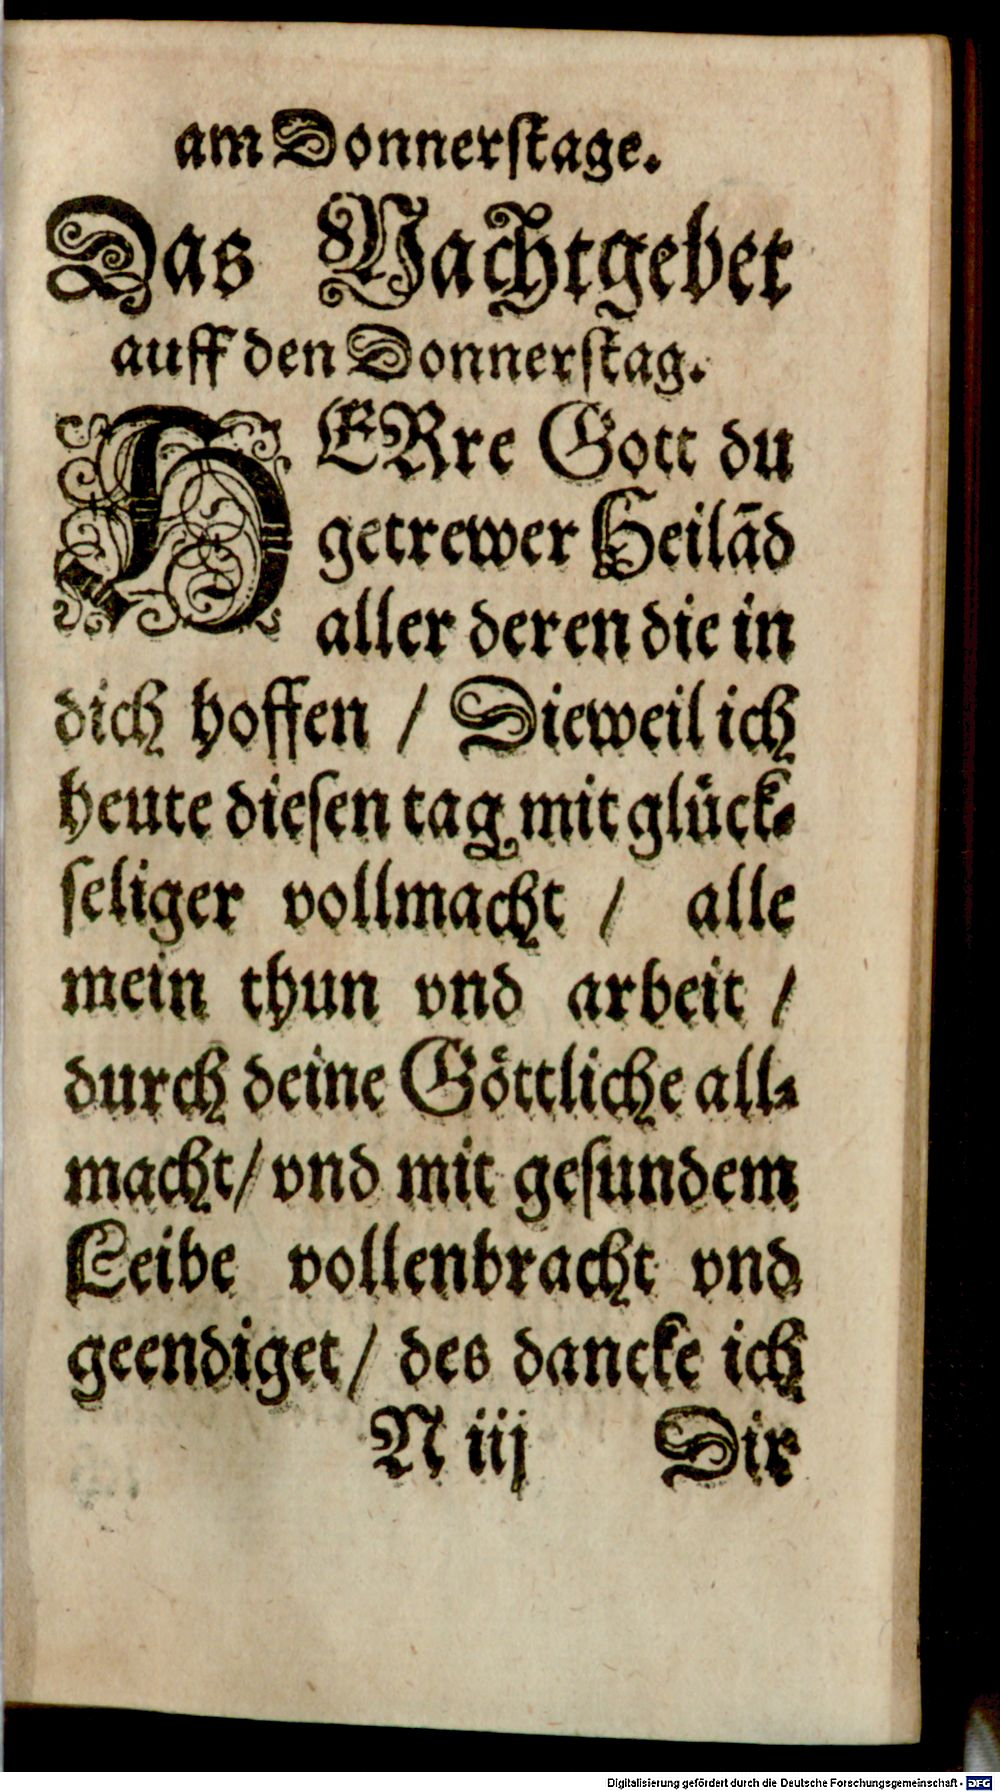 am Donnerstage.
Das Nachtgebet
auff den Donnerstag.
HERre Gott du
getrewer Heilãd
aller deren die in
dich hoffen / Dieweil ich
heute diesen tag mit glück-
seliger vollmacht / alle
mein thun vnd arbeit /
durch deine Göttliche all-
macht / vnd mit gesundem
Leibe vollenbracht vnd
geendiget / des dancke ich
N iij Dir
Digitalisierung gefördert durch die Deutsche Forschungsgemeinschaft - DFG